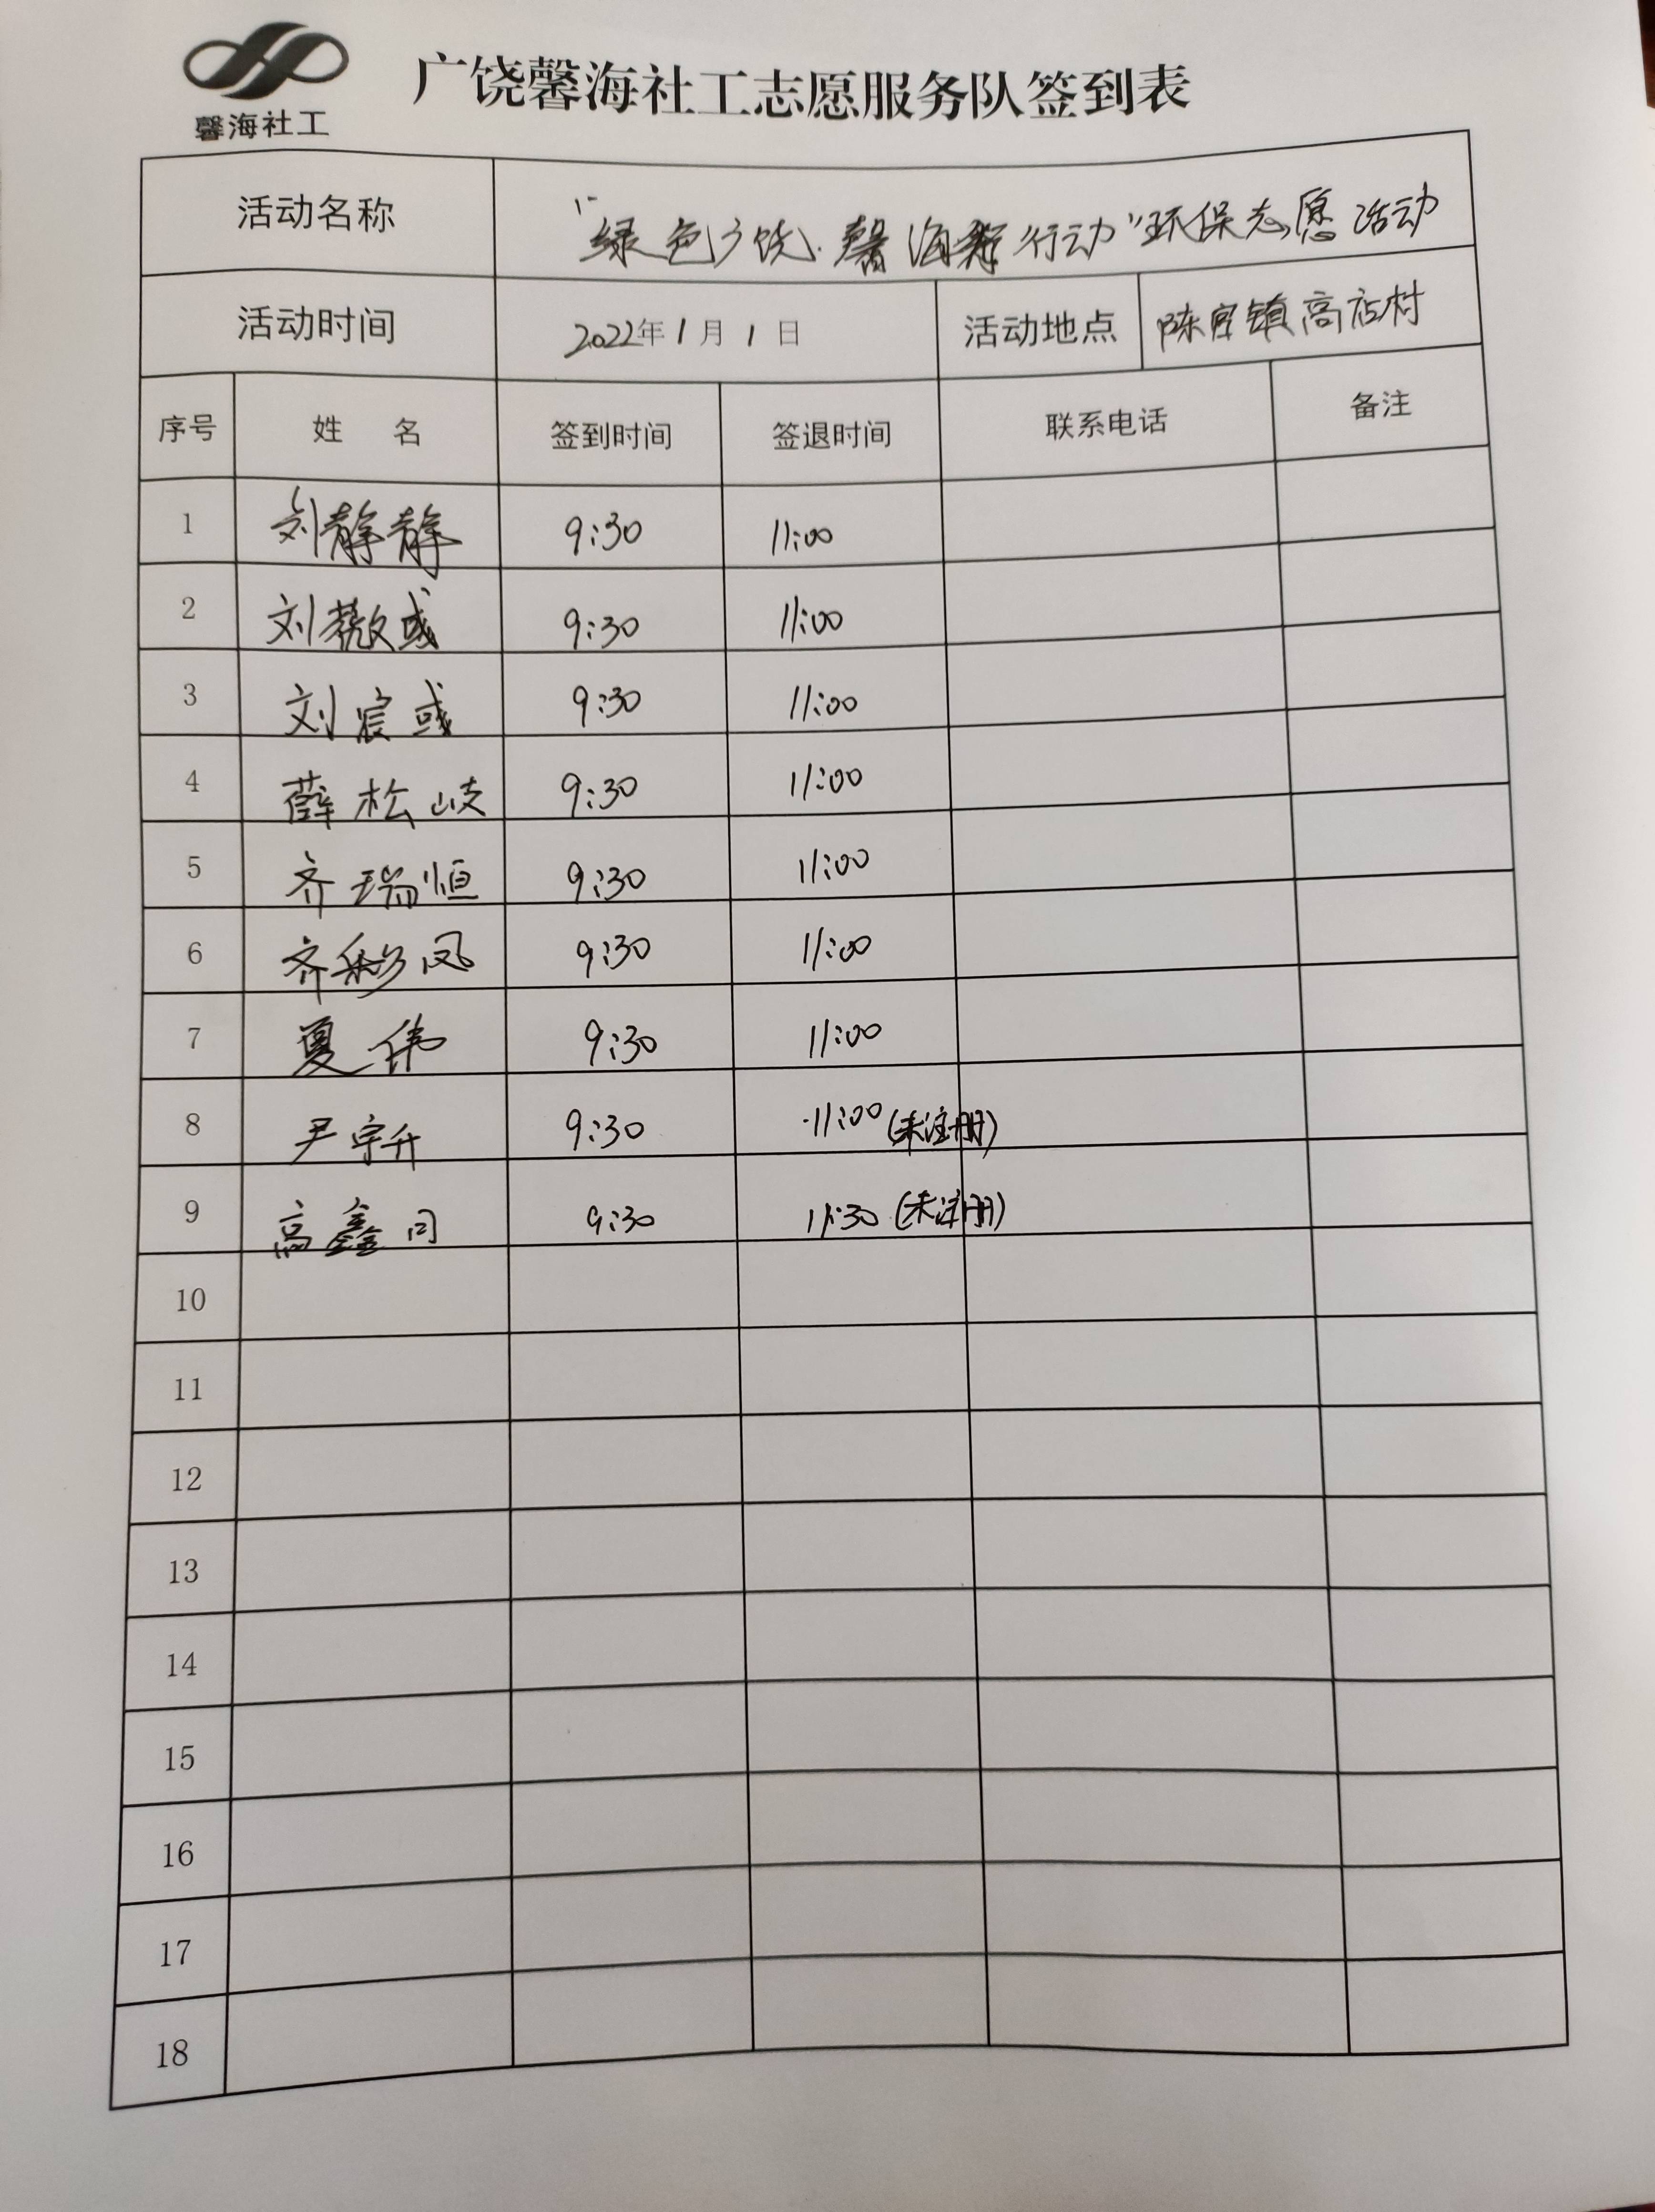 馨海社工
广饶馨海社工志愿服务队签到表
活动名称 “绿色广饶·馨海 行动”环保志愿活动
活动时间 2022年1月1日 活动地点 陈官镇高店村
序号 姓 名 签到时间 签退时间 联系电话 备注
1 刘静静 9:30 11:00
2 刘薇彧 9:30 11:00
3 刘宸彧 9:30 11:00
4 薛松岐 9:30 11:00
5 齐瑞恒 9:30 11:00
6 齐彩凤 9:30 11:00
7 夏伟 9:30 11:00
8 尹宇升 9:30 11:00 (未注册)
9 高鑫同 9:30 11:30 (未注册)
10
11
12
13
14
15
16
17
18